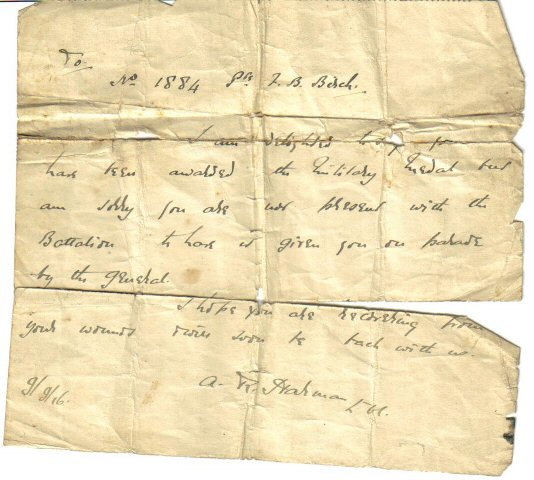 To.
No 1884 Pte F. B. Birch.
I am delighted to say you
have been awarded the Military Medal but
am sorry you are not present with the
Battalion to have it given you on parade
by the General.
I hope you are recovering from
your wounds & will soon be back with us.
A. R. Harman
9/9/16.